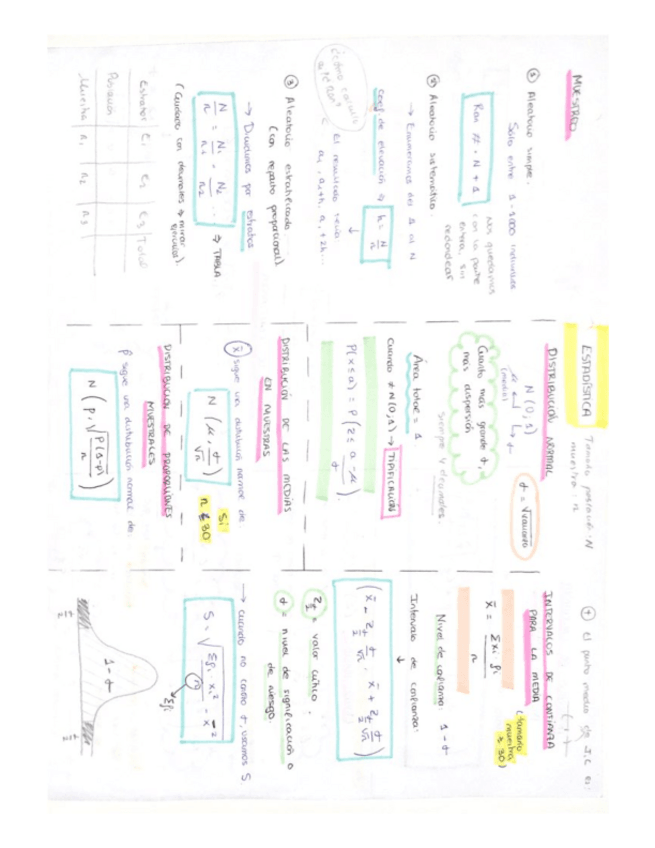 MUESTREO
① Aleatorio simple.
Sólo entre 1-1000 individuos
Ran # · N + 1
nos quedamos
con la parte
entera, sin
redondear
② Aleatorio sistemático
→ Enumeramos del 1 al N
coef de elevación → h = N/n
↓
¿Cómo calculo
El resultado sería
a1, a1+h, a1+2h...
③ Aleatorio estratificado
(con reparto proporcional)
→ Dividimos por estratos
N/n = N1/n1 = N2/n2 ... ⇒ TABLA
(Cuidado con decimales → mirar
ejercicios).
Estratos E1 E2 E3 Total
Población
Muestra n1 n2 n3
ESTADÍSTICA
Tamaño población: N
muestra: n
DISTRIBUCIÓN NORMAL
N(0,1)
(media)
σ = √varianza
Cuanto más grande σ,
más dispersión
siempre 4 decimales.
Área total = 1
Cuando ≠ N(0,1) → TIPIFICACIÓN
P(x ≤ a) = P(z ≤ (a-μ)/σ)
DISTRIBUCIÓN DE LAS MEDIAS
EN MUESTRAS
x̄ sigue una distribución normal de:
N(μ, σ/√n)
Si
n ≤ 30
DISTRIBUCIÓN DE PROPORCIONES
MUESTRALES
p̂ sigue una distribución normal de
N(p, √(p(1-p)/n))
④ El punto medio de I.C es:
INTERVALOS DE CONFIANZA
PARA LA MEDIA
(tamaño
muestra
≥ 30)
x̄ = Σxi·fi / n
Nivel de confianza: 1-α
↓
Intervalo de confianza:
(x̄ - zα/2 σ/√n, x̄ + zα/2 σ/√n)
zα/2 = valor crítico.
α = nivel de significación o
de riesgo.
→ Cuando no conozco σ, usamos S.
S = √(Σfi·xi²/n - x̄²)
Σfi
1-α